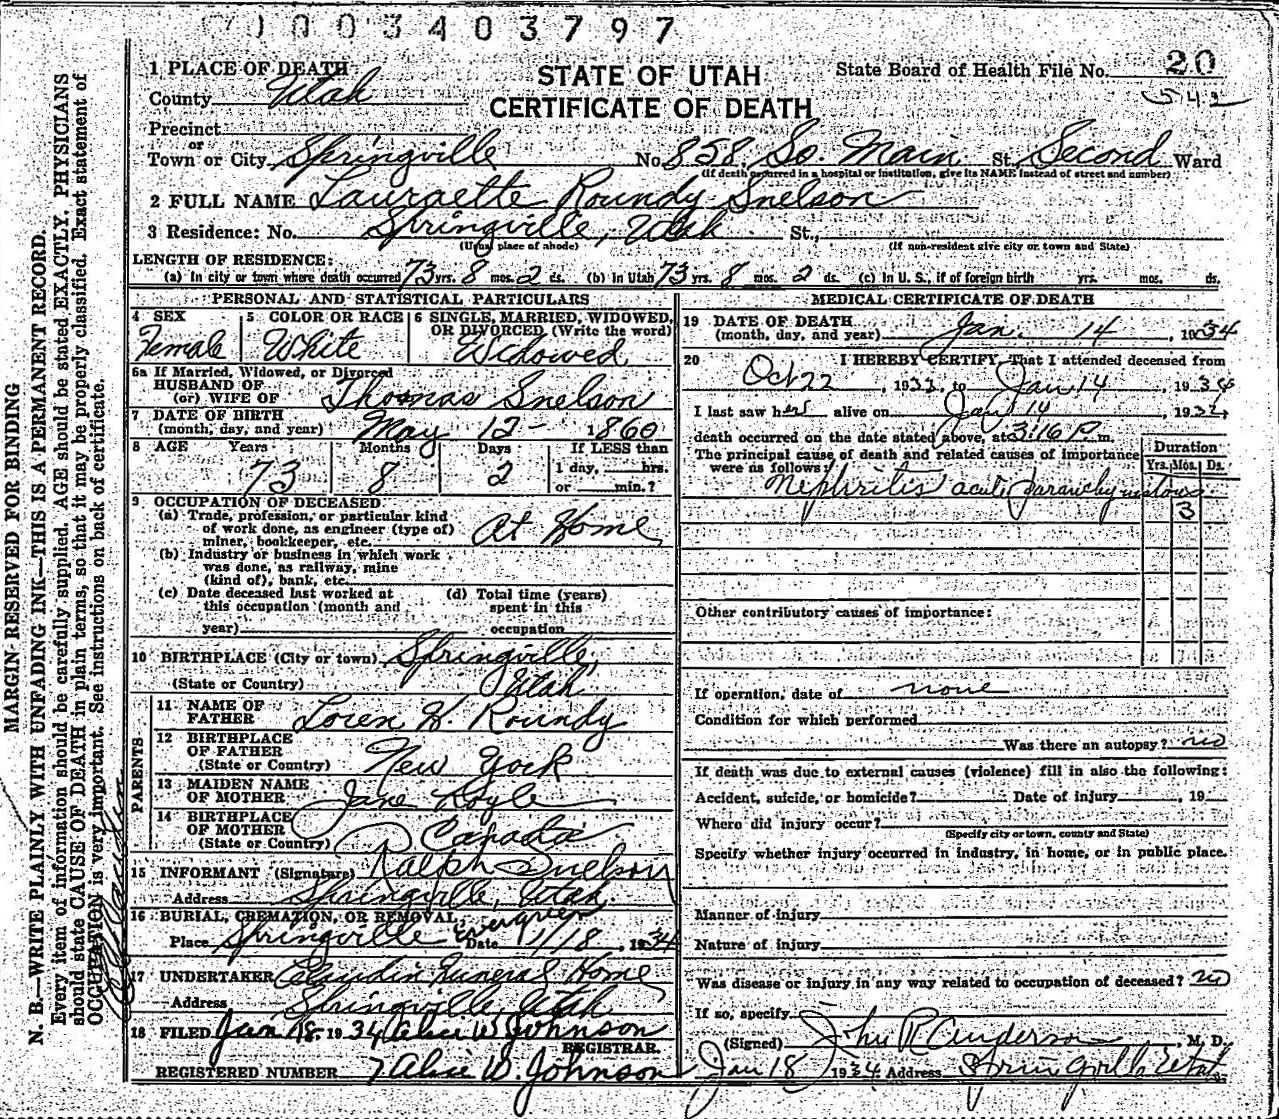 1003403797
STATE OF UTAH
CERTIFICATE OF DEATH
State Board of Health File No. 20
542
1 PLACE OF DEATH
County Utah
Precinct
or
Town or City Springville No. 858 So. Main St. Second Ward
(If death occurred in a hospital or institution, give its NAME instead of street and number)
2 FULL NAME Lauraette Roundy Snelson
3 Residence: No. Springville, Utah St.,
(Usual place of abode) (If non-resident give city or town and State)
LENGTH OF RESIDENCE:
(a) In city or town where death occurred 73 yrs. 8 mos. 2 ds. (b) In Utah 73 yrs. 8 mos. 2 ds. (c) In U. S., if of foreign birth yrs. mos. ds.
PERSONAL AND STATISTICAL PARTICULARS
4 SEX Female
5 COLOR OR RACE White
6 SINGLE, MARRIED, WIDOWED, OR DIVORCED, (Write the word) Widowed
6a If Married, Widowed, or Divorced
HUSBAND OF
(or) WIFE OF Thomas Snelson
7 DATE OF BIRTH
(month, day, and year) May 12 - 1860
8 AGE Years 73 Months 8 Days 2 If LESS than
1 day, hrs.
or min.?
9 OCCUPATION OF DECEASED
(a) Trade, profession, or particular kind
of work done, as engineer (type of)
miner, bookkeeper, etc. At Home
(b) Industry or business in which work
was done, as railway, mine
(kind of), bank, etc.
(c) Date deceased last worked at
this occupation (month and
year)
(d) Total time (years)
spent in this
occupation
10 BIRTHPLACE (City or town) Springville,
(State or Country) Utah
PARENTS
11 NAME OF
FATHER Loren W. Roundy
12 BIRTHPLACE
OF FATHER
(State or Country) New York
13 MAIDEN NAME
OF MOTHER Jane Koyle
14 BIRTHPLACE
OF MOTHER
(State or Country)
15 INFORMANT (Signature) Ralph Snelson
Address Springville, Utah
16 BURIAL, CREMATION, OR REMOVAL,
Place Springville Evergreen Date 1/18, 1934
17 UNDERTAKER Claudin Funeral Home
Address Springville, Utah
18 FILED Jan 18 1934 Alice W. Johnson
REGISTRAR.
REGISTERED NUMBER 7 Alice W. Johnson
MEDICAL CERTIFICATE OF DEATH
19 DATE OF DEATH
(month, day, and year) Jan. 14, 1934
20 I HEREBY CERTIFY, That I attended deceased from
Oct 22, 1933, to Jan 14, 1934
I last saw her alive on Jan 14, 1934
death occurred on the date stated above, at 3:16 P. m.
The principal cause of death and related causes of importance
were as follows:
Duration
Yrs. Mos. Ds.
Nephritis acute
3
Other contributory causes of importance:
If operation, date of none
Condition for which performed
Was there an autopsy? no
If death was due to external causes (violence) fill in also the following:
Accident, suicide, or homicide? Date of injury , 19
Where did injury occur?
(Specify city or town, county and State)
Specify whether injury occurred in industry, in home, or in public place.
Manner of injury
Nature of injury
Was disease or injury in any way related to occupation of deceased? no
If so, specify
(Signed) John R Anderson, M. D.
Jan 18 1934 Address Springville Utah
MARGIN RESERVED FOR BINDING
N. B.—WRITE PLAINLY WITH UNFADING INK—THIS IS A PERMANENT RECORD.
Every item of information should be carefully supplied. AGE should be stated EXACTLY. PHYSICIANS
should state CAUSE OF DEATH in plain terms, so that it may be properly classified. Exact statement of
OCCUPATION is very important. See instructions on back of certificate.